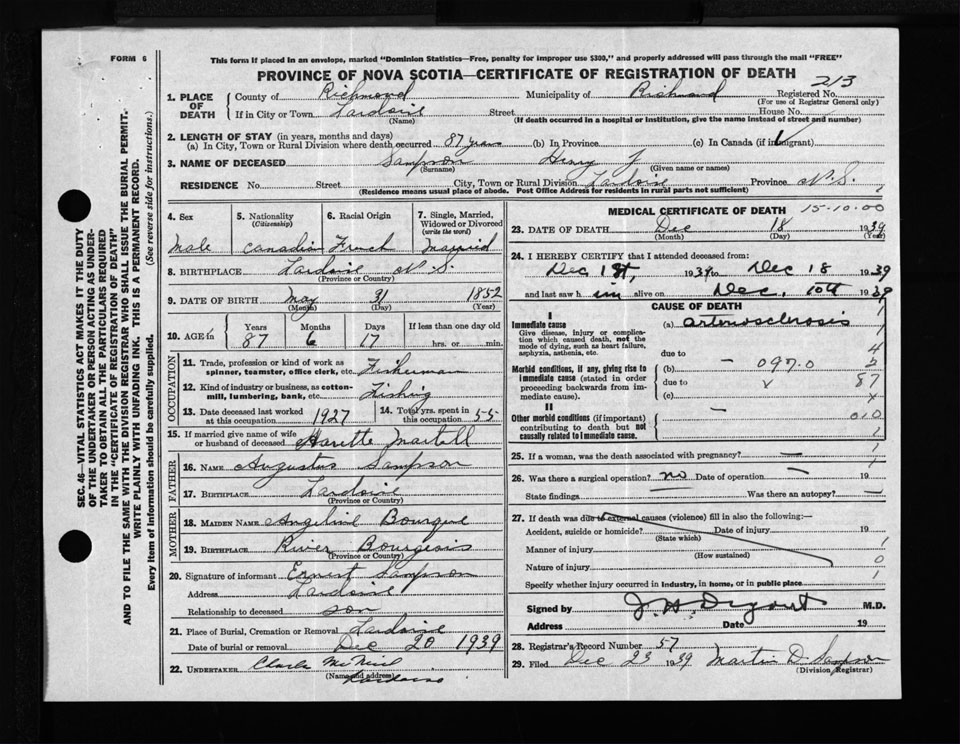 FORM 6
This form if placed in an envelope, marked "Dominion Statistics—Free, penalty for improper use $300," and properly addressed will pass through the mail "FREE"
PROVINCE OF NOVA SCOTIA—CERTIFICATE OF REGISTRATION OF DEATH
213
1. PLACE OF DEATH
County of Richmond Municipality of Richmond Registered No.
(For use of Registrar General only)
If in City or Town Lardoise Street House No.
(Name) (If death occurred in a hospital or institution, give the name instead of street and number)
2. LENGTH OF STAY (in years, months and days)
(a) In City, Town or Rural Division where death occurred 87 years (b) In Province (c) In Canada (if immigrant)
3. NAME OF DECEASED Sampson Henry J
(Surname) (Given name or names)
RESIDENCE No. Street City, Town or Rural Division Lardoise Province N.S.
(Residence means usual place of abode. Post Office Address for residents in rural parts not sufficient)
4. Sex Male
5. Nationality (Citizenship) Canadian
6. Racial Origin French
7. Single, Married, Widowed or Divorced (write the word) Married
8. BIRTHPLACE Lardoise N.S.
(Province or Country)
9. DATE OF BIRTH May 31 1852
(Month) (Day) (Year)
10. AGE Years 87 Months 6 Days 17 If less than one day old hrs. or min.
OCCUPATION
11. Trade, profession or kind of work as spinner, teamster, office clerk, etc. Fisherman
12. Kind of industry or business, as cotton-mill, lumbering, bank, etc. Fishing
13. Date deceased last worked at this occupation 1927
14. Total yrs. spent in this occupation 55
15. If married give name of wife or husband of deceased Harette Martell
FATHER
16. NAME Augustus Sampson
17. BIRTHPLACE Lardoise
(Province or Country)
MOTHER
18. MAIDEN NAME Angeline Bourque
19. BIRTHPLACE River Bourgeois
(Province or Country)
20. Signature of informant Ernest Sampson
Address Lardoise
Relationship to deceased son
21. Place of Burial, Cremation or Removal Lardoise
Date of burial or removal Dec 20 1939
22. UNDERTAKER McNeil
(Name and address)
MEDICAL CERTIFICATE OF DEATH 15-10-00
23. DATE OF DEATH Dec 18 1939
(Month) (Day) (Year)
24. I HEREBY CERTIFY that I attended deceased from:
Dec 1st, 1939 to Dec 18 1939
and last saw him alive on Dec. 10th 1939
CAUSE OF DEATH
I
Immediate cause
Give disease, injury or complication which caused death, not the mode of dying, such as heart failure, asphyxia, asthenia, etc.
(a) arteriosclerosis
due to
Morbid conditions, if any, giving rise to immediate cause (stated in order proceeding backwards from immediate cause).
(b) — 097.0
due to
(c)
87
II
Other morbid conditions (if important) contributing to death but not causally related to immediate cause.
—
010
25. If a woman, was the death associated with pregnancy? —
26. Was there a surgical operation? no Date of operation —
State findings Was there an autopsy? —
27. If death was due to external causes (violence) fill in also the following:—
Accident, suicide or homicide? Date of injury 19
(State which)
Manner of injury
(How sustained)
Nature of injury
Specify whether injury occurred in industry, in home, or in public place
Signed by M.D.
Address Date 19
28. Registrar's Record Number 57
29. Filed Dec 23 1939 Martin D. Sampson
(Division Registrar)
SEC. 46—VITAL STATISTICS ACT MAKES IT THE DUTY
OF THE UNDERTAKER OR PERSON ACTING AS UNDER-
TAKER TO OBTAIN ALL THE PARTICULARS REQUIRED
IN THE "CERTIFICATE OF REGISTRATION OF DEATH"
AND TO FILE THE SAME WITH THE DIVISION REGISTRAR WHO SHALL ISSUE THE BURIAL PERMIT.
WRITE PLAINLY WITH UNFADING INK. THIS IS A PERMANENT RECORD.
Every item of information should be carefully supplied. (See reverse side for instructions.)